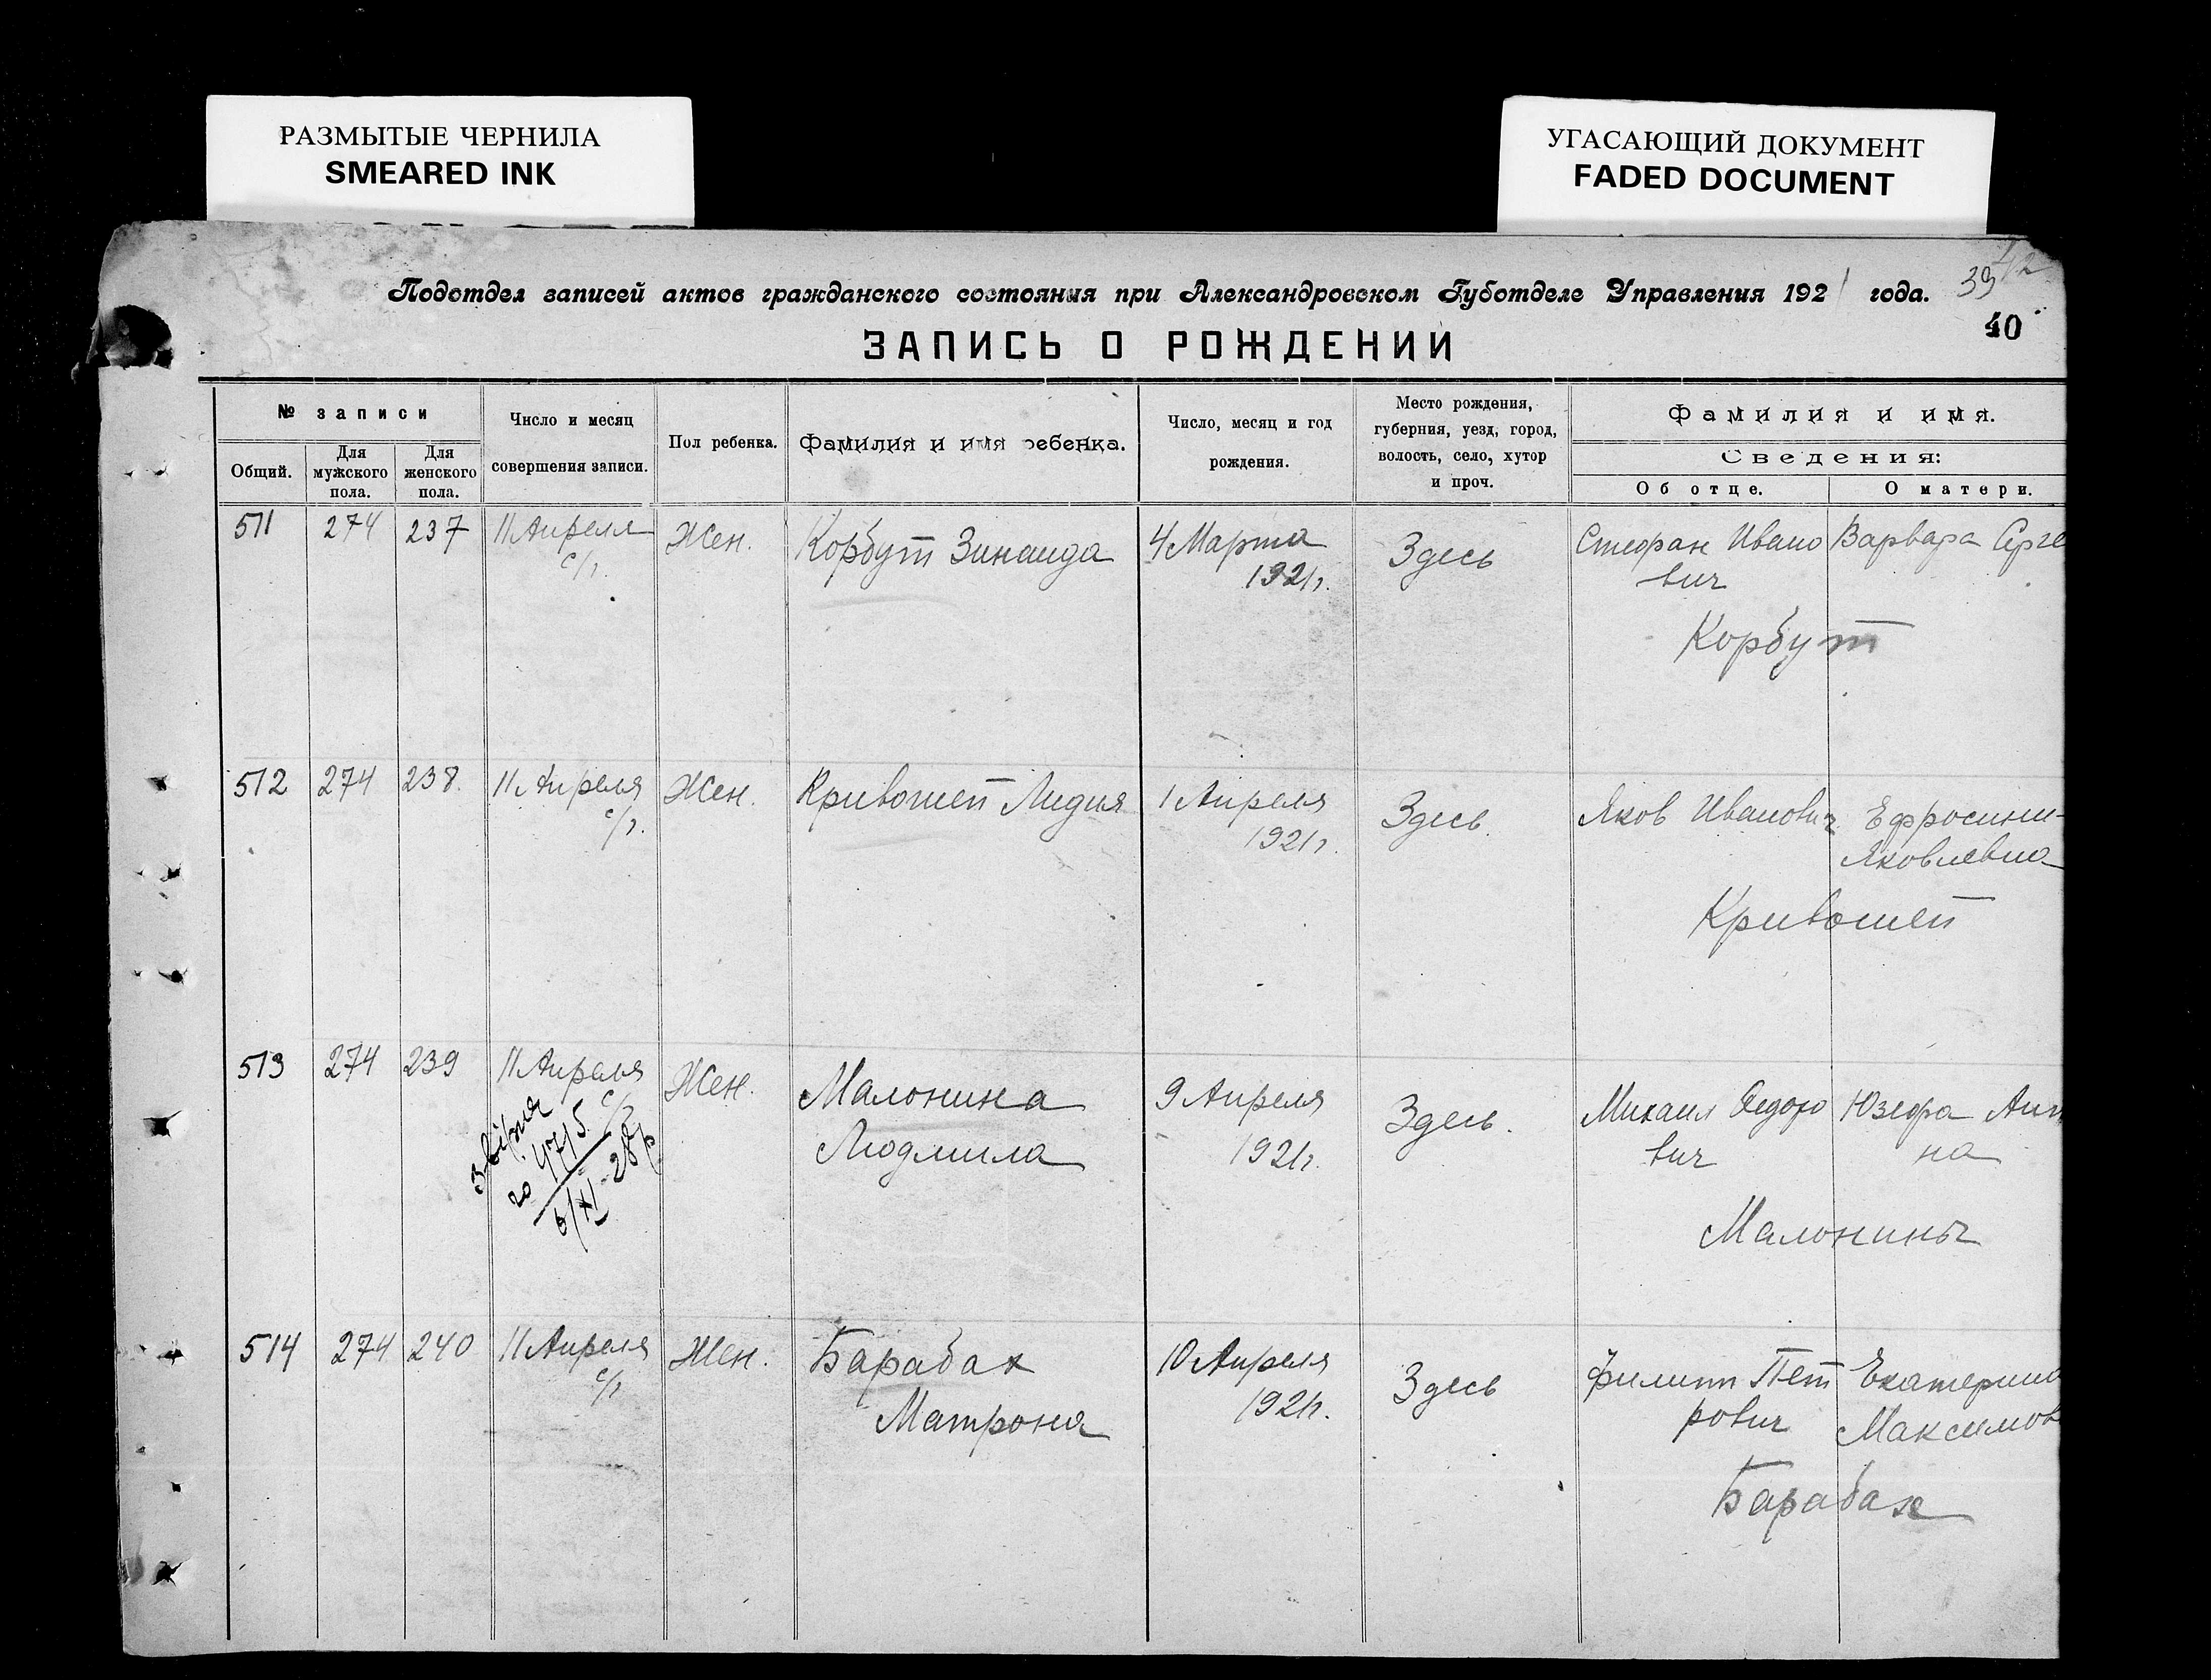 РАЗМЫТЫЕ ЧЕРНИЛА
SMEARED INK
УГАСАЮЩИЙ ДОКУМЕНТ
FADED DOCUMENT
42
39
Подотдел записей актов гражданского состояния при Александровском Губотделе Управления 1921 года.
40
ЗАПИСЬ О РОЖДЕНИИ
№ записи
Общий.
Для мужского пола.
Для женского пола.
Число и месяц
совершения записи.
Пол ребенка.
Фамилия и имя ребенка.
Число, месяц и год
рождения.
Место рождения,
губерния, уезд, город,
волость, село, хутор
и проч.
Фамилия и имя.
Сведения:
Об отце.
О матери.
511 274 237 11 Апреля Жен. Корбут Зинаида 4 Марта Здесь Стефан Ивано Варвара Серге
с/г. 1921г. вич
Корбут
512 274 238. 11 Апреля Жен. Кривошеп Лидия 1 Апреля Здесь. Яков Иванович Ефросини-
с/г. 1921г. Яковлевна
Кривошеп
513 274 239 11 Апреля Жен. Малонина 9 Апреля Здесь. Михаил Федоро Юзефа Ант
с/г Людмила 1921г. вич на
4715
6/XI-28р
Малонины
514 274 240 11 Апреля Жен. Барабах 10 Апреля Здесь Филипп Пет Екатерина
с/г Матрона 1921г. рович Максимов
Барабах